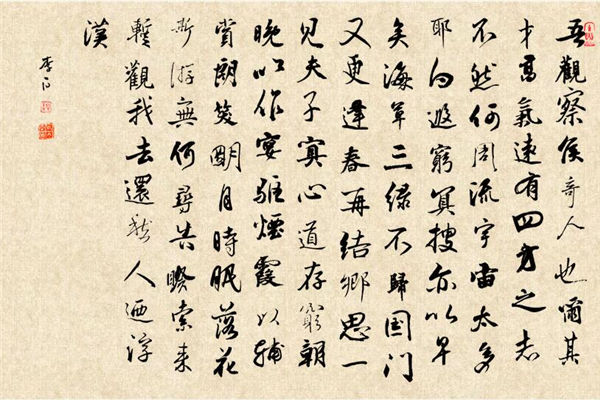 吾觀察侯奇人也爾其
才高氣遠有四方之志
不然何周流宇宙太多
耶白遐窮冥搜亦以早
矣海草三綠不歸國門
又更逢春再結鄉思一
見夫子冥心道存窮朝
晚以作宴駐煙霞以輔
賞朗笑明月時眠落花
斯游無何尋告睽索來
暫觀我去還愁人迺浮
漢